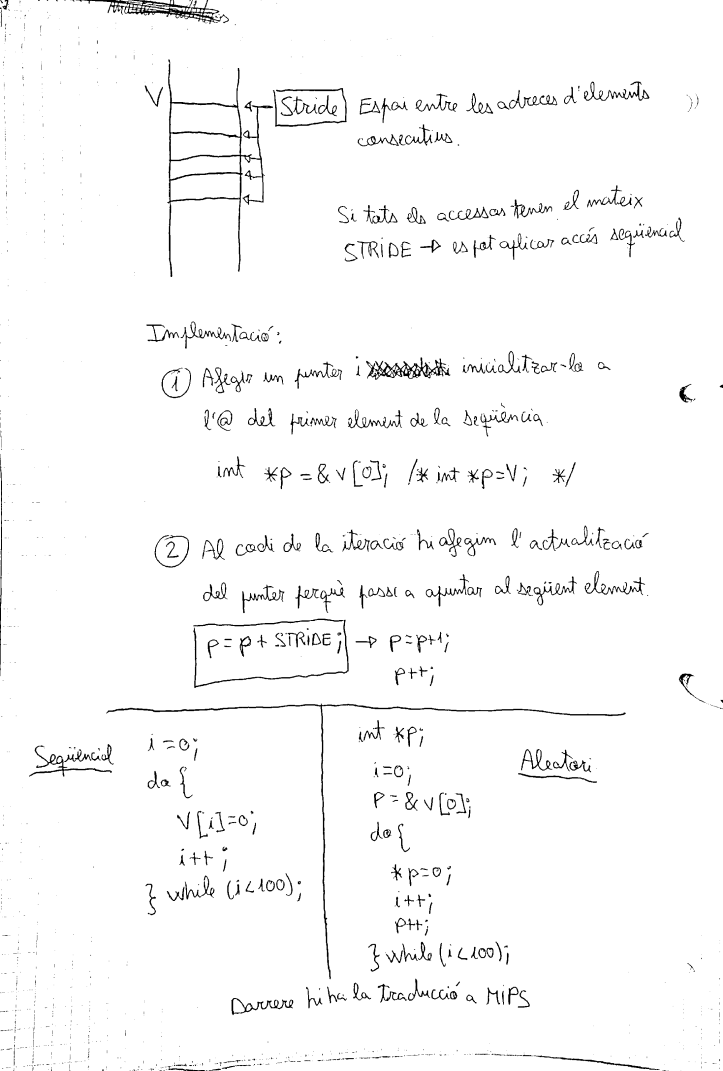 V
Stride Espai entre les adreces d'elements
consecutius.
Si tots els accessos tenen el mateix
STRIDE → es pot aplicar accés seqüencial
Implementació:
① Afegir un punter i inicialitzar-lo a
l'@ del primer element de la seqüència.
int *p = & v[0]; /* int *p=V; */
② Al codi de la iteració hi afegim l'actualització
del punter perquè passi a apuntar al següent element.
p = p + STRIDE; → p=p+1;
p++;
Seqüencial
i=0;
do {
V[i]=0;
i++;
} while (i<100);
Aleatori
int *p;
i=0;
P = & v[0];
do {
*p=0;
i++;
p++;
} while (i<100);
Darrere hi ha la traducció a MIPS